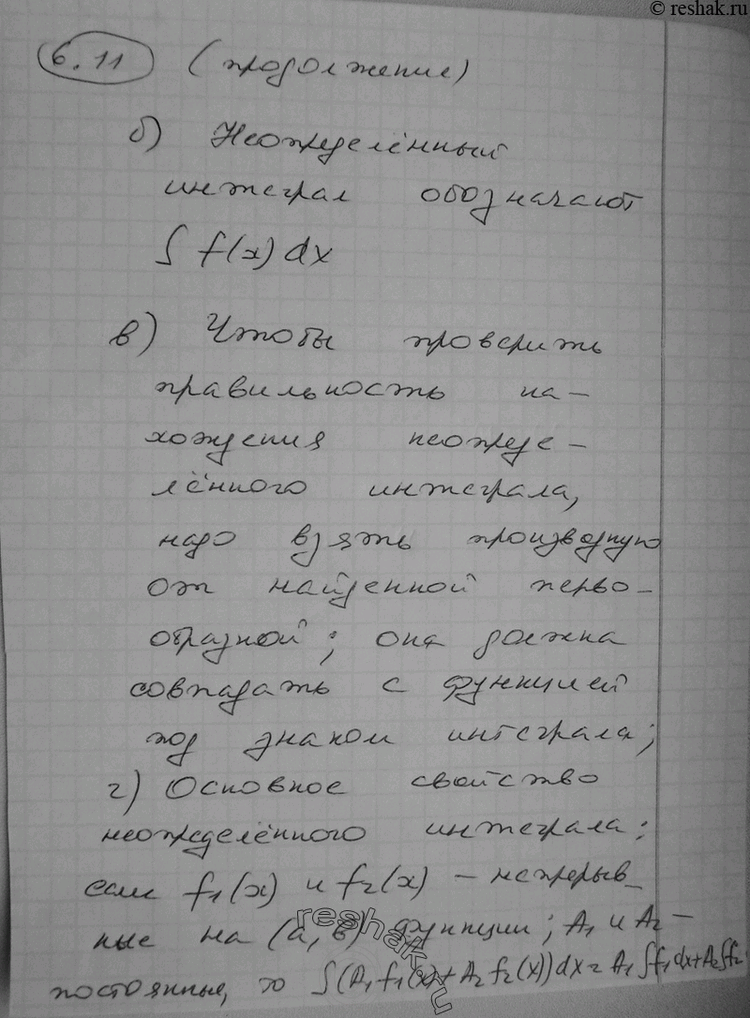 © reshak.ru
6.11 (продолжение)
б) Неопределённый
интеграл обозначают
∫ f(x) dx
в) Чтобы проверить
правильность на-
хождения неопреде-
лённого интеграла,
надо взять производную
от найденной перво-
образной; она должна
совпадать с функцией
под знаком интеграла;
г) Основное свойство
неопределённого интеграла:
если f₁(x) и f₂(x) – непрерыв-
ные на (a, b) функции; A₁ и A₂ –
постоянные, то ∫(A₁f₁(x)+A₂f₂(x))dx = A₁∫f₁dx+A₂∫f₂
reshak.ru